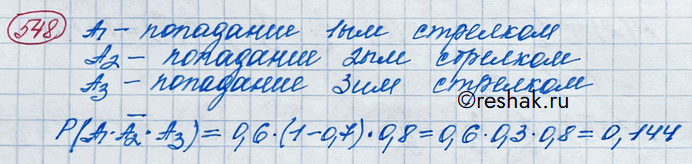 548 A1 – попадание 1ым стрелком
A2 – попадание 2ым стрелком
A3 – попадание 3им стрелком
©reshak.ru
P(A1·A̅2·A3) = 0,6·(1–0,7)·0,8 = 0,6·0,3·0,8 = 0,144